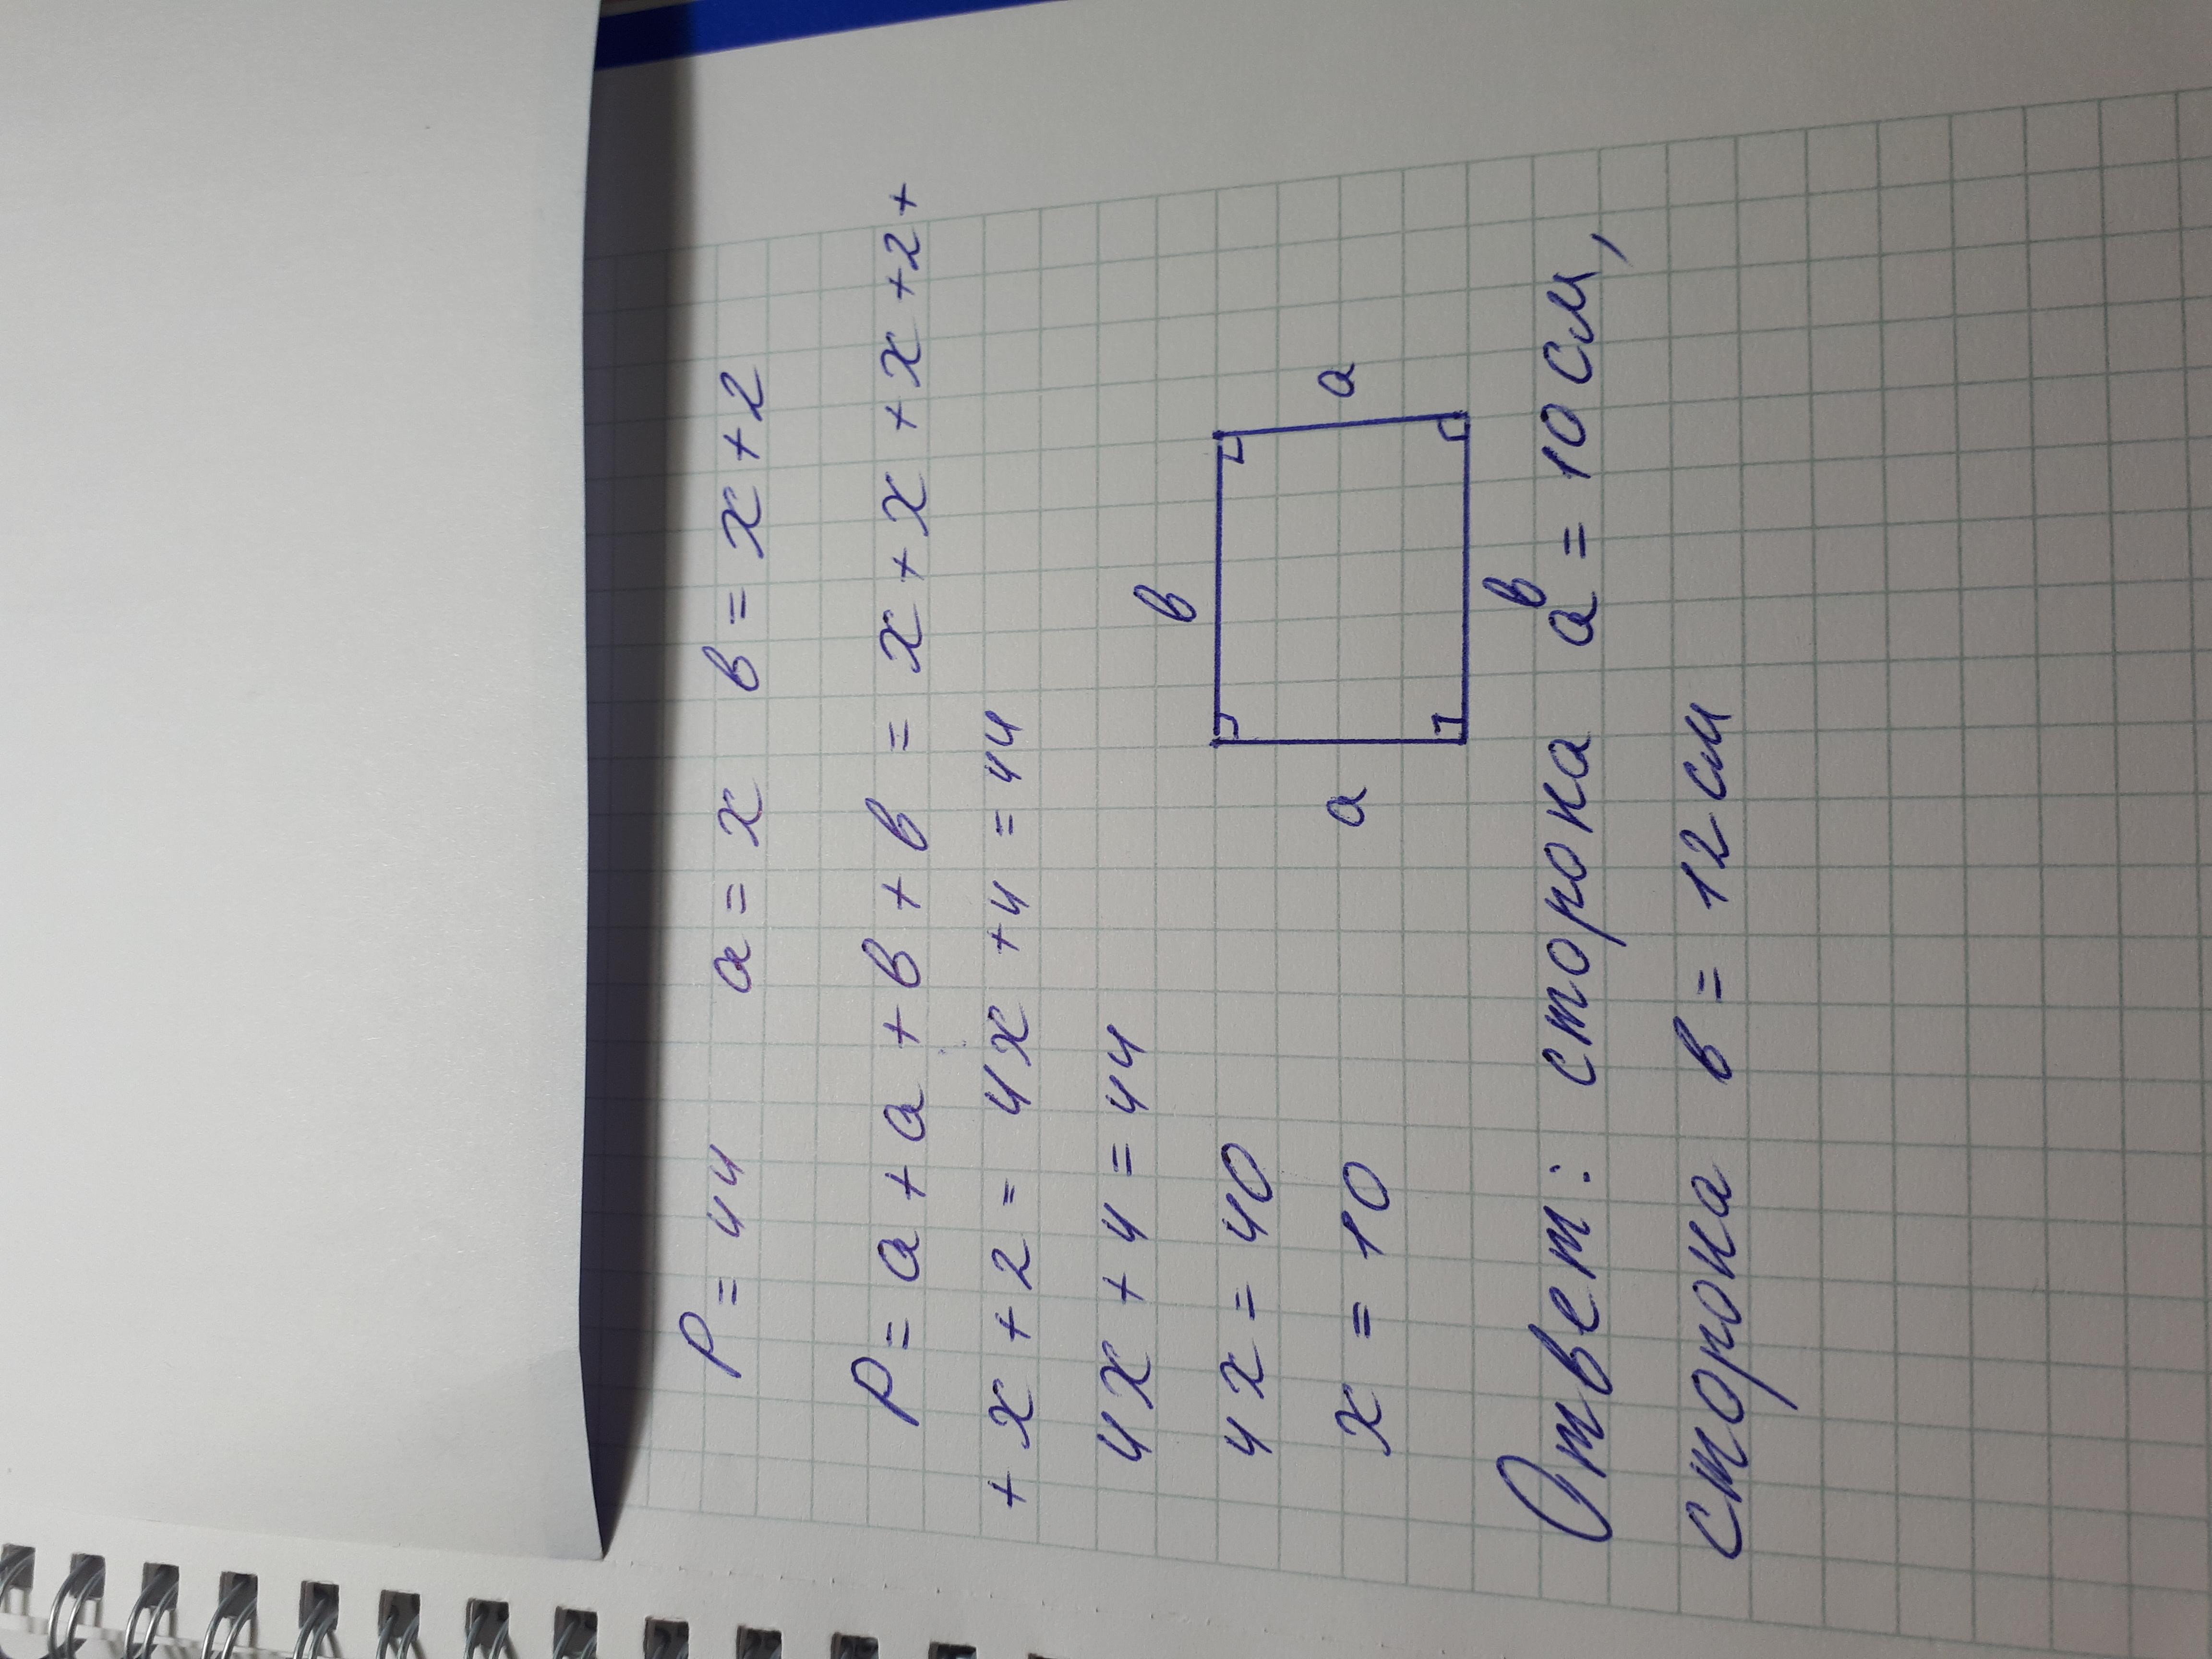 P = 44 a = x в = x + 2
P = a + a + в + в = x + x + x + 2 +
+ x + 2 = 4x + 4 = 44
4x + 4 = 44
4x = 40
x = 10
в
a
a
в
Ответ: сторона a = 10 см,
сторона в = 12 см